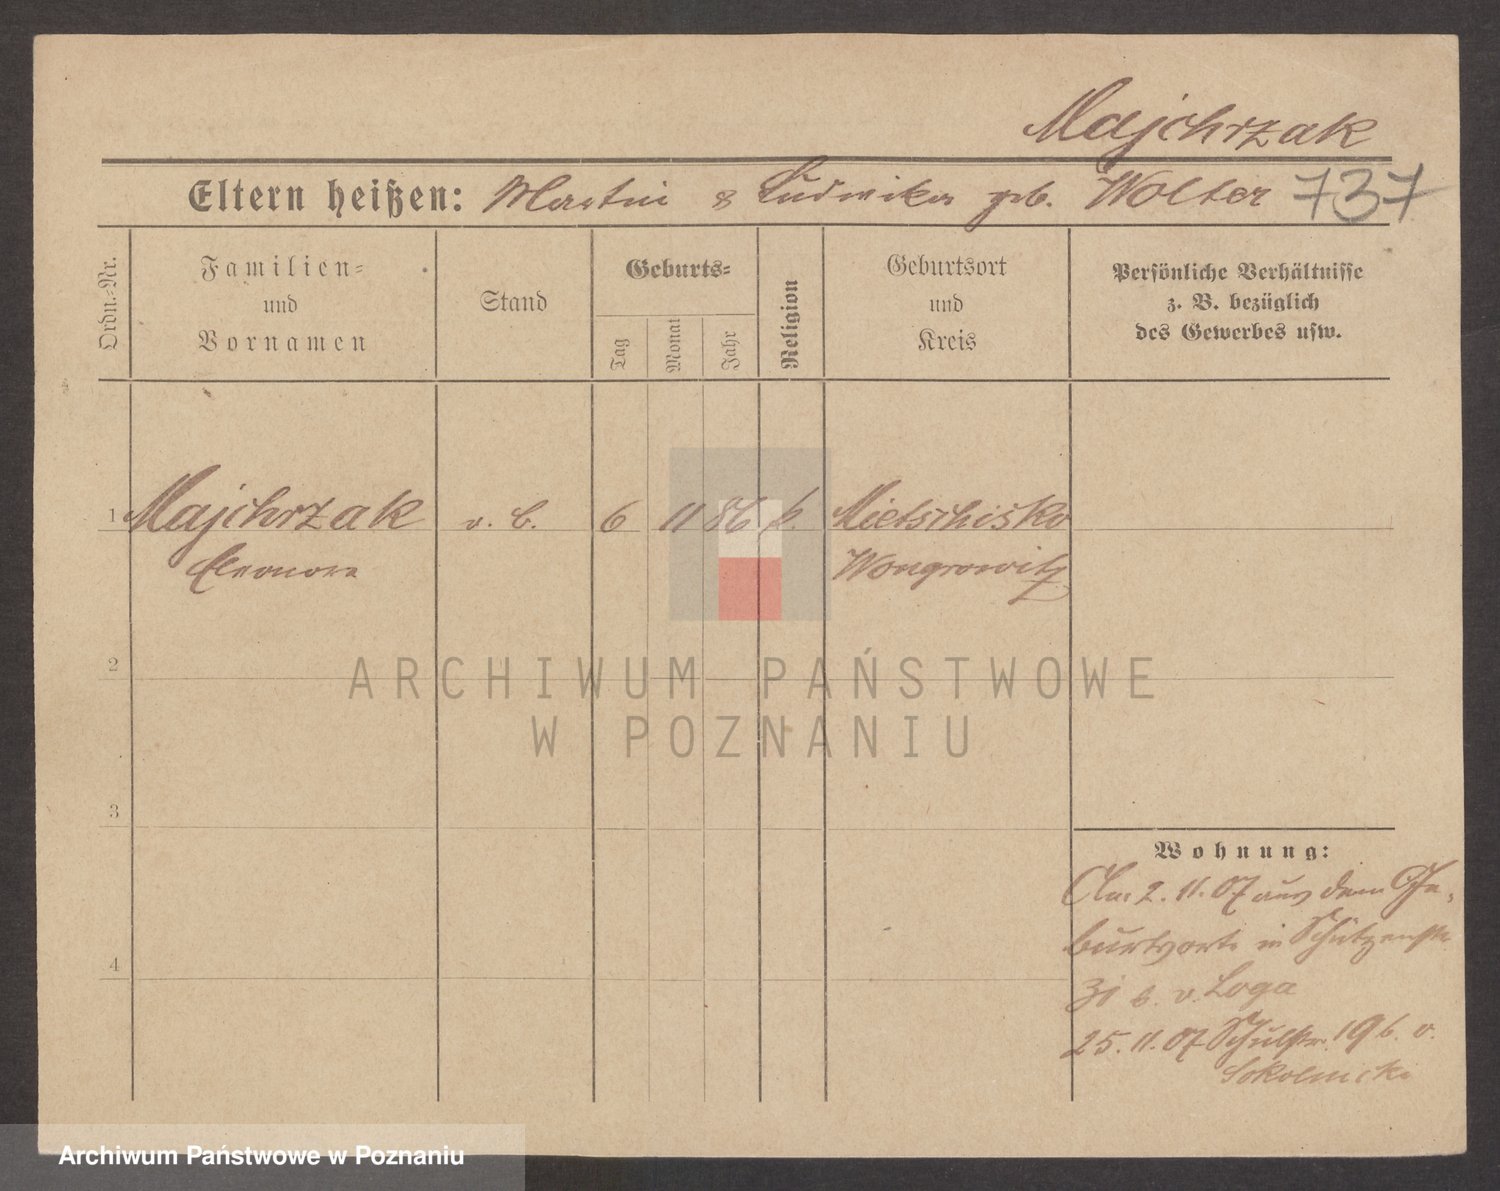 Majchrzak
Eltern heißen: Martin & Ludwika geb. Wolter 737
Ordn.-Nr.
Familien-
und
Vornamen
Stand
Geburts-
Tag
Monat
Jahr
Religion
Geburtsort
und
Kreis
Persönliche Verhältnisse
z. B. bezüglich
des Gewerbes usw.
1 Majchrzak 6 11 86 Mietschisko
Eleonora Wongrowitz
2
3
4
Wohnung:
Am 2.11.07 aus dem Ge-
burtsorte in Schützenstr.
31 b. v. Loga
25.11.07 Schulstr. 19 b. v.
Sokolnicki
ARCHIWUM PAŃSTWOWE
W POZNANIU
Archiwum Państwowe w Poznaniu